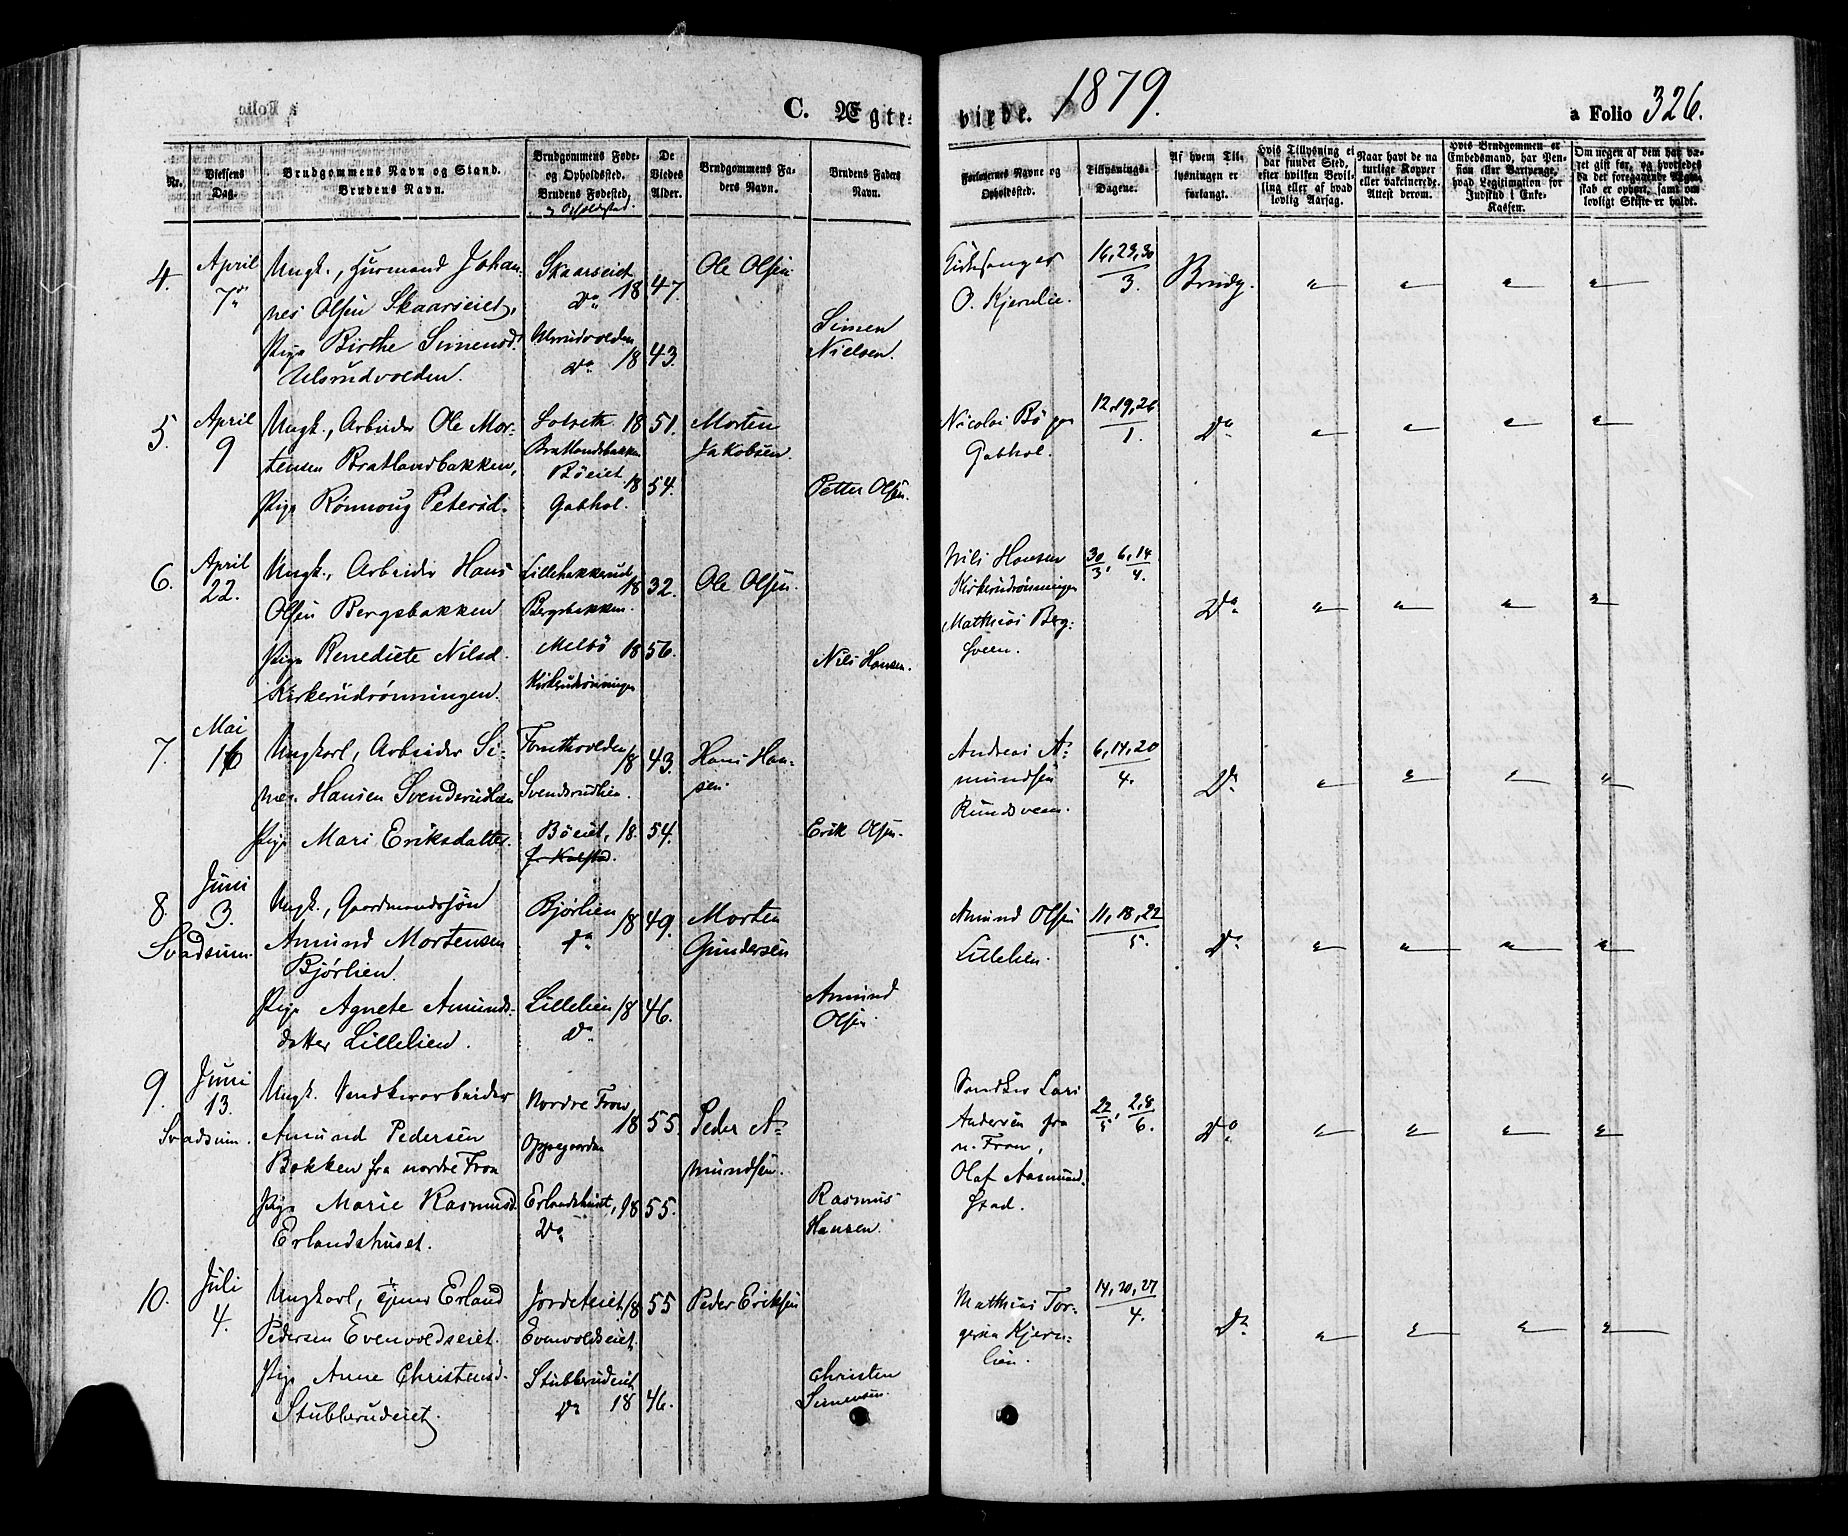 C. Ægte- viede. 1879. a Folio 326.
Nr.
Vielsens Dag.
Brudgommens Navn og Stand.
Brudens Navn.
Brudgommens Føde- og Opholdssted.
Brudens Fødested, og Opholdssted.
De Viedes Alder.
Brudgommens Faders Navn.
Brudens Faders Navn.
Forlovernes Navne og Opholdssted.
Tillysnings-Dagene.
Af hvem Tillysningen er forlangt.
Hvis Tillysning ei har fundet Sted, efter hvilken Bevilling eller af hvad lovlig Aarsag.
Naar havt de naturlige Kopper eller vaccinerede. Attest derom.
Hvis Brudgommen er Embedsmand, har Pension eller Vartpenge, hvad Legitimation for Indskud i Enke-Kassen.
Om nogen af dem har været gift før, og hvorledes da det foregaaende Ægteskab er ophørt, samt om lovligt Skifte er holdt.
4. April 7de
Ungk., Huusmand Johan-
nes Olsen Skaarseiet,
Pige Birthe Simensd.
Ulsrudvolden.
Skaarseiet Do 18 47.
Ulsrudvolden Do 18 43.
Ole Olsen
Simen Nielsen.
Kirkesanger O. Kjernlie.
16, 23, 30/3.
Brudg.
5. April 9
Ungk., Arbeider Ole Mor-
tensen Bratlandbakken,
Pige Rønnoug Petersd.
Solseth 18 51.
Bratlandsbakken
Böeiet 18 54.
Gabhol.
Morten Jakobsen.
Petter Olsen.
Nicolai Bö pr Gabhol.
12, 19, 26/1.
Do
6. April 22.
Ungk., Arbeider Hans
Olsen Bergsbakken
Pige Benedicte Nilsd.
Kirkerudrønningen.
Lillehakkerud 18 32.
Bergsbakken.
Melbö 18 56.
Kirkerudrønningen
Ole Olsen.
Nils Hansen.
Nils Hansen
Kirkerudrønningen
Matthias Berg-
sveen.
30/3, 6, 14/4.
Do
7. Mai 16
Ungkarl, Arbeider Si-
men Hansen Svendsrudlien
Pige Mari Eriksdatter.
Fonthvolden 18 43.
Svendsrudlien.
Böeiet, 18. 54.
Hans Han-
sen.
Erik Olsen.
Andreas A-
mundsen
Rundsveen.
6, 14, 20/4.
Do
8. Juni 3.
Svadsum.
Ungk., Gaardmandssøn
Amund Mortensen
Bjørlien.
Pige Agnete Amunds-
datter Lillelien.
Bjørlien 18 49.
Do
Lillelien 18 46.
Do
Morten Gundersen
Amund Olsen.
Amund Olsen
Lillelien.
11, 18, 22/5.
Do
9. Juni 13.
Svadsum.
Ungk. Snedkerarbeider
Amund Pedersen
Bakken fra nordre Fron
Pige Marie Rasmusd.
Erlandshuset.
Nordre Fron 18 55.
Oppegaarden
Erlandshuset, 18 55.
Do
Peder A-
mundsen.
Rasmus Hansen.
Snedker Lars
Andersen fra
n. Fron,
Olaf Aasmund-
stad.
22/5, 2, 8/6.
Do
10. Juli 4.
Ungkarl, Tjener Erland
Pedersen Evenvoldseiet.
Pige Anne Christensd.
Stubberudeiet.
Jordeteiet 18 55
Evenvoldseiet.
Stubberudeiet
Do 18 46.
Peder Eriksen
Christen Simensen.
Matthias Tor-
gersen Kjern-
lien.
14, 20, 27/4.
Do